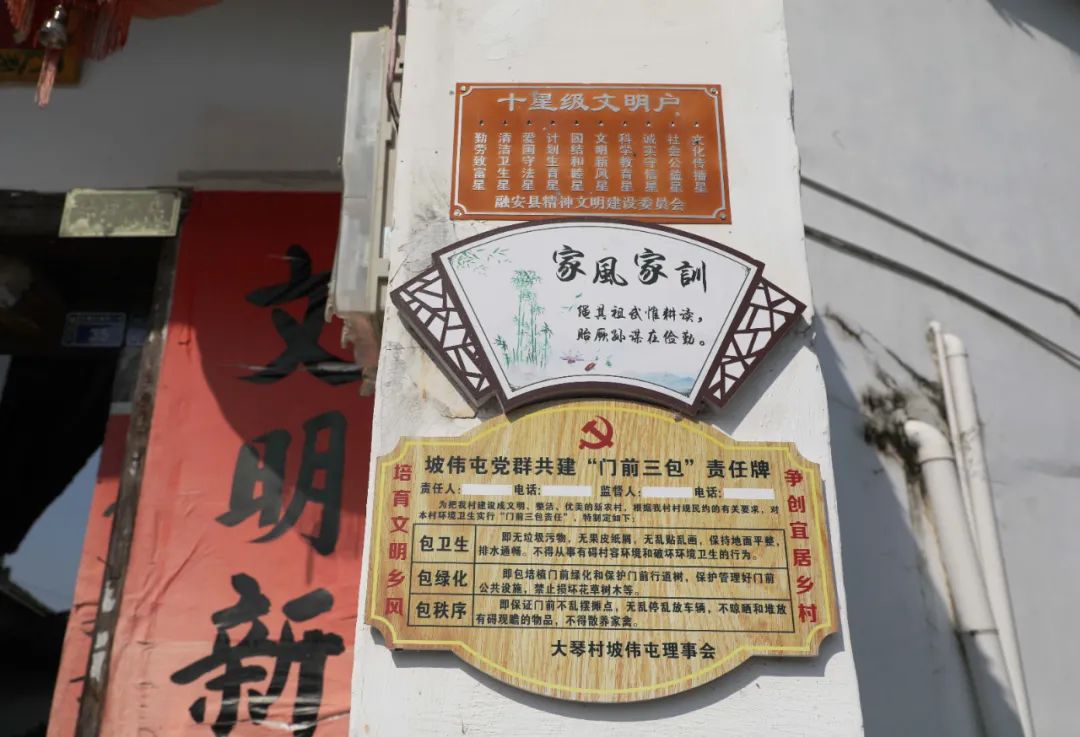 十星级文明户
勤劳致富星
清洁卫生星
爱国守法星
计划生育星
团结和睦星
文明新风星
科学教育星
诚实守信星
社会公益星
文化传播星
融安县精神文明建设委员会
家風家訓
绳其祖武惟耕读，
贻厥孙谋在俭勤。
坡伟屯党群共建“门前三包”责任牌
责任人： 电话： 监督人： 电话：
为把我村建设成文明、整洁、优美的新农村，根据我村村规民约的有关要求，对
本村环境卫生实行“门前三包责任”，特制定如下：
包卫生
即无垃圾污物，无果皮纸屑，无乱贴乱画，保持地面平整，
排水通畅。不得从事有碍村容环境和破坏环境卫生的行为。
包绿化
即包培植门前绿化和保护门前行道树，保护管理好门前
公共设施，禁止损坏花草树木等。
包秩序
即保证门前不乱摆摊点，无乱停乱放车辆，不晾晒和堆放
有碍观瞻的物品，不得散养家禽。
大琴村坡伟屯理事会
培育文明乡风
争创宜居乡村
文明新